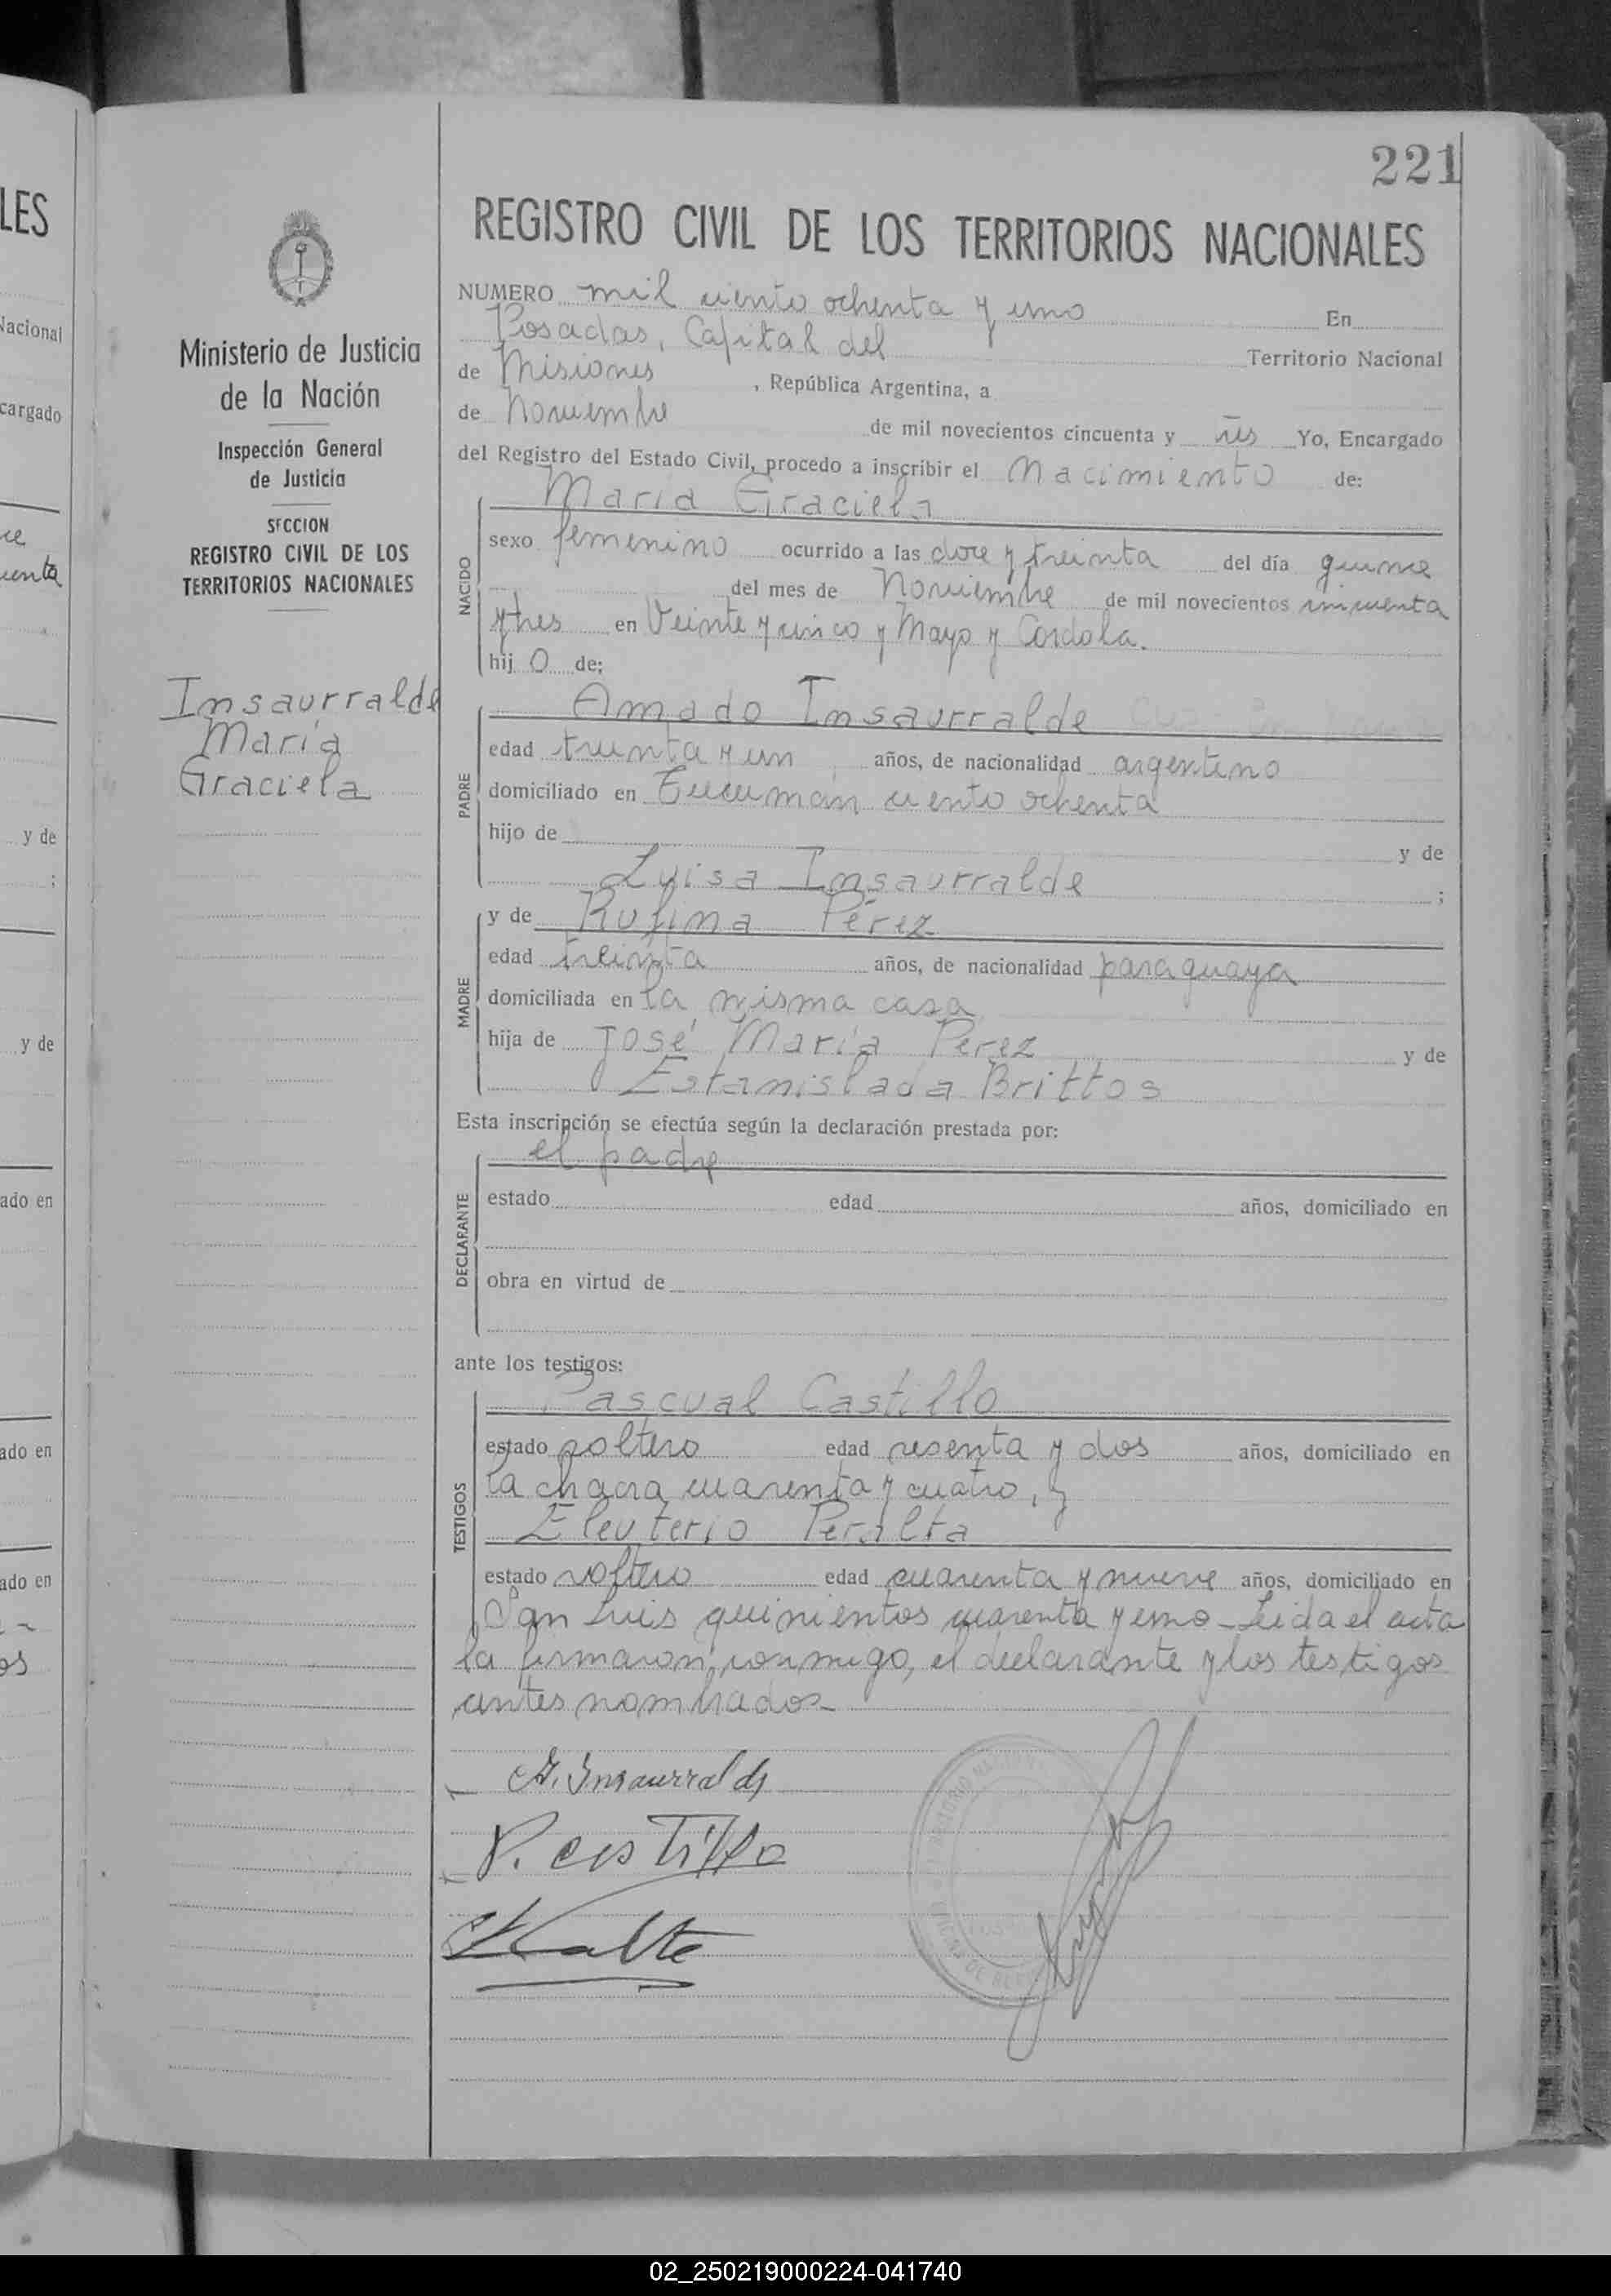 221
REGISTRO CIVIL DE LOS TERRITORIOS NACIONALES
NUMERO mil ciento ochenta y uno En
Posadas, Capital del Territorio Nacional
de Misiones, República Argentina, a
de Noviembre de mil novecientos cincuenta y tres Yo, Encargado
del Registro del Estado Civil, procedo a inscribir el Nacimiento de:
María Graciela
NACIDO
sexo femenino ocurrido a las doce y treinta del día quince
del mes de Noviembre de mil novecientos cincuenta
y tres en Veinte y cinco y Mayo y Cordoba.
hij O de:
Amado Insaurralde
PADRE
edad treinta y un años, de nacionalidad argentino
domiciliado en Tucumán ciento ochenta
hijo de y de
Luisa Insaurralde ;
y de Rufina Pérez
MADRE
edad treinta años, de nacionalidad paraguaya
domiciliada en la misma casa
hija de José María Pérez y de
Estanislada Brittos
Esta inscripción se efectúa según la declaración prestada por:
el padre
DECLARANTE
estado edad años, domiciliado en
obra en virtud de
ante los testigos:
Pascual Castillo
TESTIGOS
estado soltero edad sesenta y dos años, domiciliado en
la chacra cuarenta y cuatro, y
Eleuterio Peralta
estado soltero edad cuarenta y nueve años, domiciliado en
San Luis quinientos cuarenta y uno - Leida el acta
la firmaron conmigo, el declarante y los testigos
antes nombrados
A. Insaurralde
P. Castillo
Ministerio de Justicia
de la Nación
Inspección General
de Justicia
SECCION
REGISTRO CIVIL DE LOS
TERRITORIOS NACIONALES
Insaurralde
María
Graciela
LES
Nacional
cargado
y de
;
y de
ado en
ado en
ado en
02_250219000224-041740